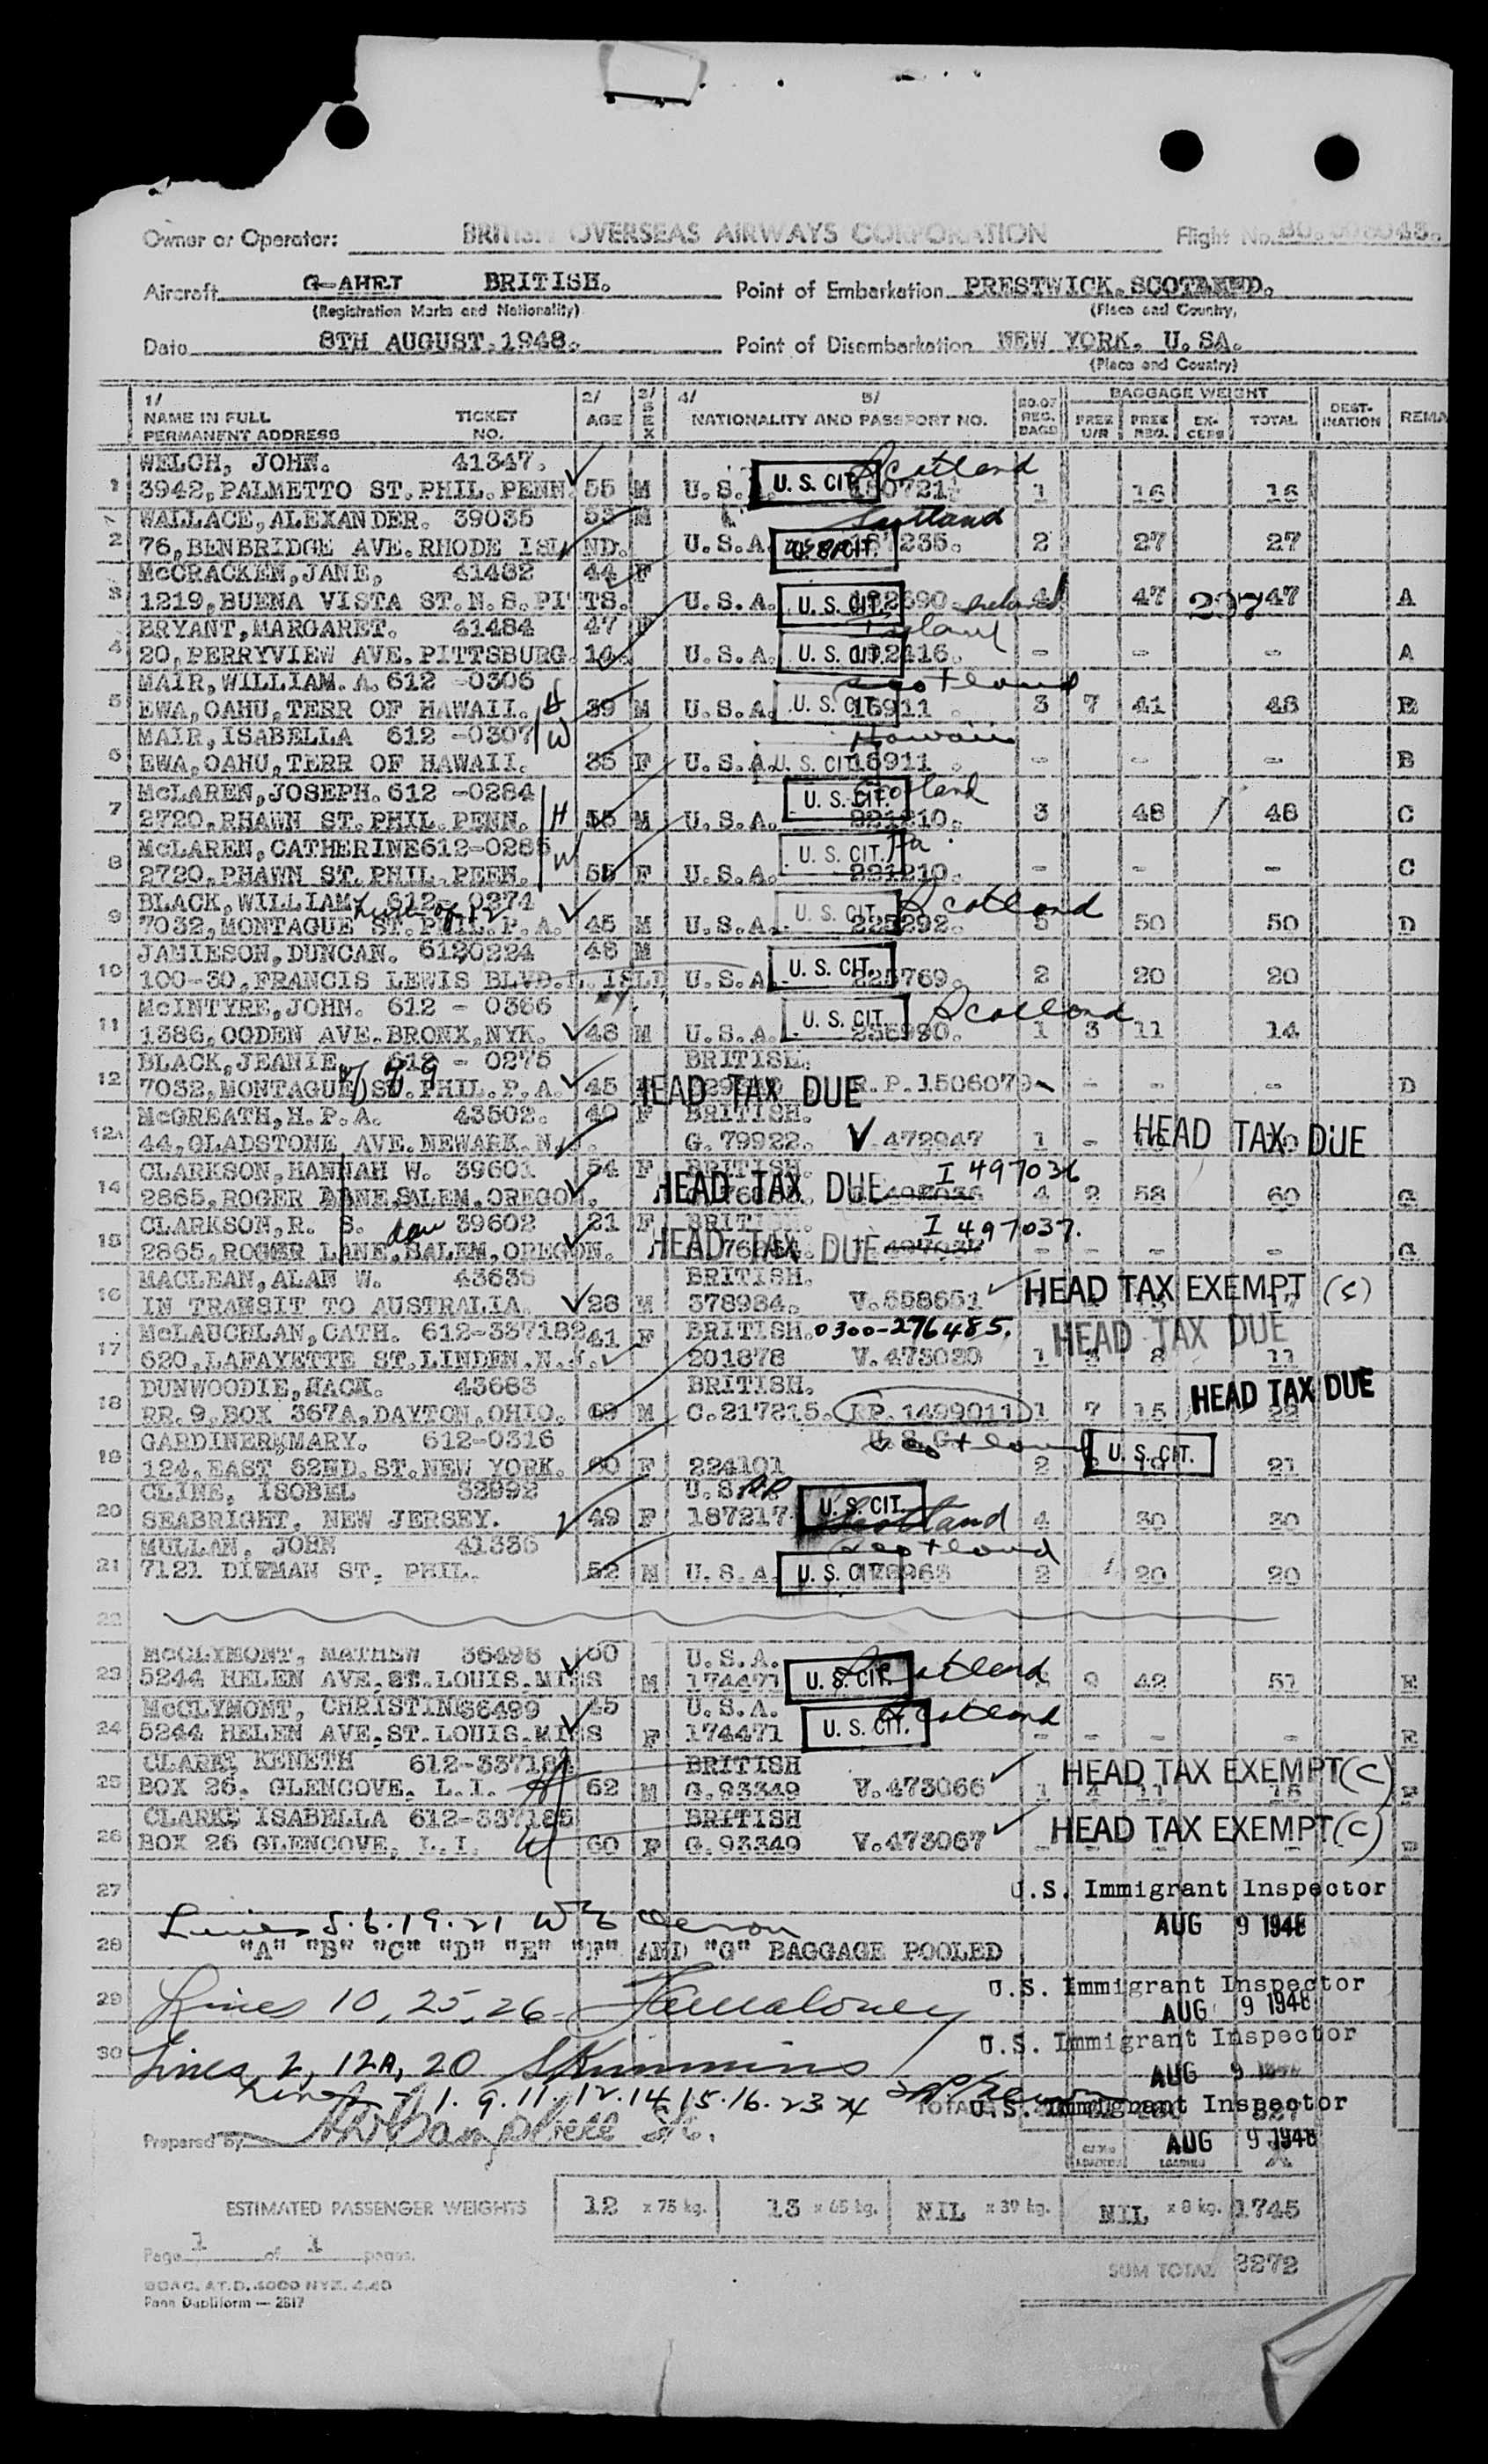 Owner or Operator: BRITISH OVERSEAS AIRWAYS CORPORATION Flight No.
Aircraft G-AHEJ BRITISH. Point of Embarkation PRESTWICK.
(Registration Marks and Nationality) (Place and Country)
Date 8TH AUGUST.1948. Point of Disembarkation NEW YORK. U.SA.
(Place and Country)
1/ 2/ 3/ 4/ 5/ NO.OF BAGGAGE WEIGHT
NAME IN FULL TICKET AGE SEX NATIONALITY AND PASSPORT NO. REG. FREE FREE EX- TOTAL DEST- REMA
PERMANENT ADDRESS NO. BAGS U/R REG. CESS INATION
WELCH, JOHN. 41347. Scotland
1 3942,PALMETTO ST.PHIL.PENN. 55 M U.S. U. S. CIT. 1 16 16
WALLACE,ALEXANDER. 39035 M Scotland
2 76,BENBRIDGE AVE.RHODE ISLAND. U.S.A. U. S. CIT. 235. 2 27 27
McCRACKEN,JANE, 41482 44 F
3 1219,BUENA VISTA ST.N.S.PITTS. U.S.A. U. S. CIT. Ireland 4 47 47 A
BRYANT,MARGARET. 41484 47 F
4 20,PERRYVIEW AVE.PITTSBURG.14. U.S.A. U. S. CIT. - - - A
MAIR,WILLIAM.A. 612 -0306 Scotland
5 EWA,OAHU,TERR OF HAWAII. H 39 M U.S.A. U. S. CIT. 16911 3 7 41 48 B
MAIR,ISABELLA 612 -0307 W Hawaii
6 EWA,OAHU,TERR OF HAWAII. 35 F U.S.A. U. S. CIT. 16911 - - - B
McLAREN,JOSEPH. 612 -0284 Scotland
7 2720.RHAWN ST.PHIL.PENN. H M U.S.A. U. S. CIT. 221210. 3 48 48 C
McLAREN,CATHERINE612-0285 W Pa.
8 2720.PHAWN ST.PHIL.PEEN. 55 F U.S.A. U. S. CIT. 221210. - - - C
BLACK,WILLIAM, 612- 0274 Scotland
9 7032,MONTAGUE ST.PHIL.P.A. 45 M U.S.A. U. S. CIT. 225292. 5 50 50 D
JAMIESON,DUNCAN. 6120224 48 M
10 100-30.FRANCIS LEWIS BLVD.L.ISLD NY. U.S.A. U. S. CIT. 2 20 20
McINTYRE,JOHN. 612 - 0366 Scotland
11 1386,OGDEN AVE.BRONX,NYK. 48 M U.S.A. U. S. CIT. 1 3 11 14
BLACK,JEANIE, 612 - 0275 BRITISH.
12 7032,MONTAGUE ST.PHIL.P.A. 45 HEAD TAX DUE R.P.1506079 - - - D
McGREATH,H.P.A. 43502. 40 F BRITISH.
12A 44,GLADSTONE AVE.NEWARK.N. G.79922. V 472947 1 - HEAD TAX DUE
CLARKSON,HANNAH W. 39601 54 F BRITISH. I 497036
14 2865,ROGER LANE SALEM,OREGON. HEAD TAX DUE 4 2 58 60 G
CLARKSON,R. S. dau 39602 21 F BRITISH. I 497037.
15 2865,ROGER LANE,SALEM,OREGON. HEAD TAX DUE - - - G
MACLEAN,ALAN W. 43635 BRITISH.
16 IN TRANSIT TO AUSTRALIA. 28 M 378984. V.558651 HEAD TAX EXEMPT
McLAUCHLAN,CATH. 612-337182 41 F BRITISH.0300-276485. HEAD TAX DUE
17 620,LAFAYETTE ST.LINDEN.N.J. 201878 V.473020 1 3 8 11
DUNWOODIE,JACK. 43683 BRITISH.
18 RR.9.BOX 367A,DAYTON,OHIO. M C.217815. RP.1499011 1 7 15 22 HEAD TAX DUE
GARDINER,MARY. 612-0316 Scotland
19 124,EAST 62ND.ST.NEW YORK. 60 F 224101 2 U. S. CIT. 21
CLINE, ISOBEL 32992 U.S.
20 SEABRIGHT, NEW JERSEY. 49 F 187217 U. S. CIT. Scotland 4 30 30
MULLAN, JOHN 41336 Scotland
21 7121 DITMAN ST. PHIL. 52 M U.S.A. U. S. CIT. 2 20 20
22
McCLYMONT, MATHEW 36498 60 U.S.A.
23 5244 HELEN AVE.ST.LOUIS.MISS M 174471 U. S. CIT. Scotland 9 42 51 E
McCLYMONT, CHRISTINE36499 45 U.S.A.
24 5244 HELEN AVE.ST.LOUIS.MISS F 174471 U. S. CIT. Scotland - - - - E
CLARKE KENETH 612-337184 BRITISH
25 BOX 26. GLENCOVE, L.I. H 62 M G.93349 V.473066 1 4 11 15 HEAD TAX EXEMPT(C)
CLARKE ISABELLA 612-337185 BRITISH
26 BOX 26 GLENCOVE, L.I. W 60 F G.93349 V.473067 HEAD TAX EXEMPT(C)
27 U.S. Immigrant Inspector
Lines 5.6.19.21 AUG 9 1948
28 "A" "B" "C" "D" "E" "F" AND "G" BAGGAGE POOLED
U.S. Immigrant Inspector
29 Lines 10,25,26 AUG 9 1948
U.S. Immigrant Inspector
30 Lines 2, 12A, 20 AUG 9 1948
1.9.11.12.14.15.16.23 24 TOTAL U.S. Immigrant Inspector
Prepared by AUG 9 1948
ESTIMATED PASSENGER WEIGHTS 12 x 75 kg. 13 x 65 kg. NIL x 39 kg. NIL x 8 kg. 1745
Page 1 of 1 pages.
SUM TOTAL 2272
BOAC. A.T.D.4000 NYK. 4.48
Penn Dupliform — 2817